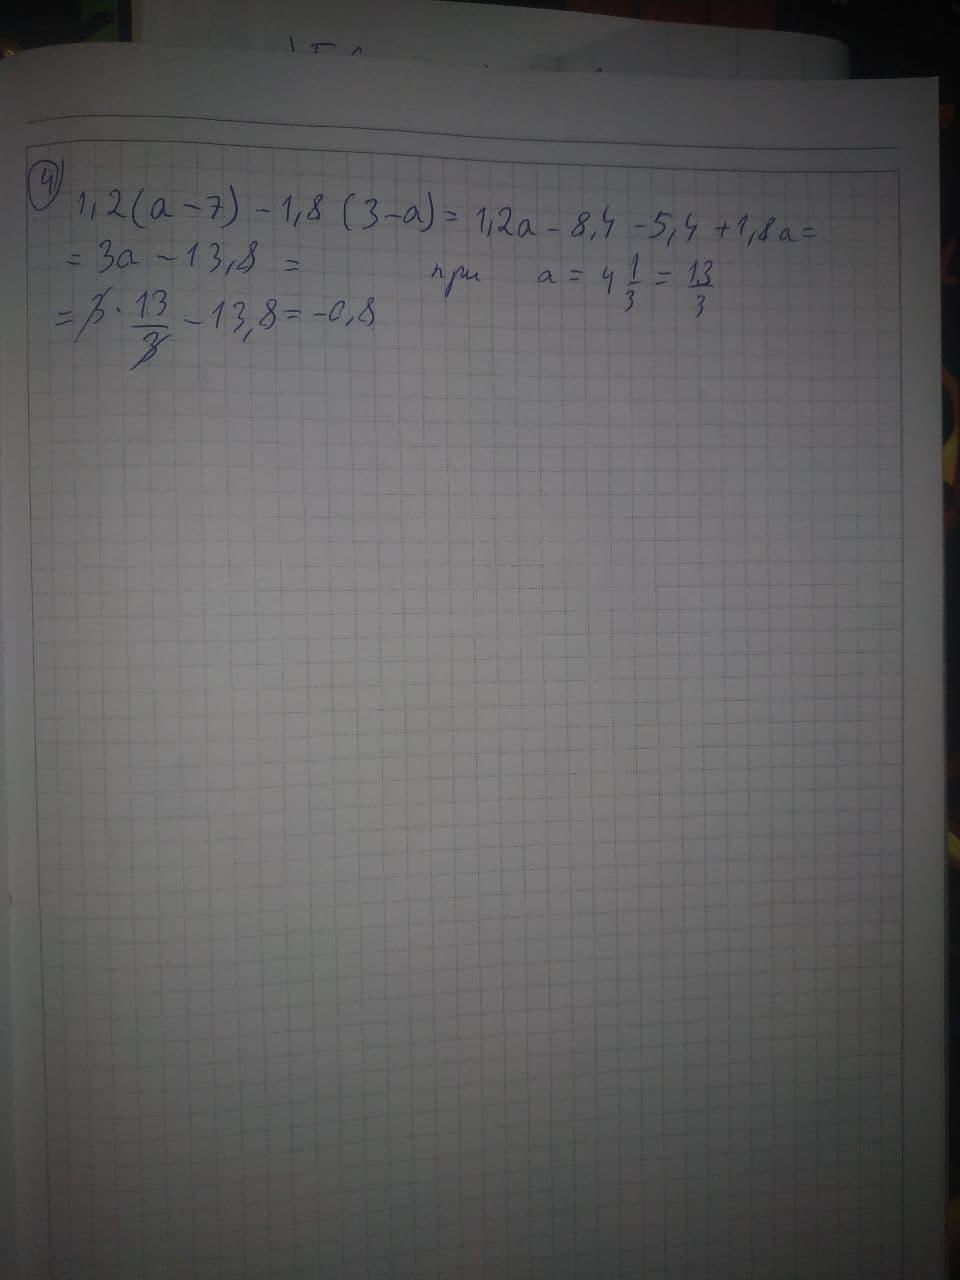 4
1,2(a-7) - 1,8 (3-a) = 1,2a - 8,4 - 5,4 + 1,8a =
= 3a - 13,8 = при a = 4 1/3 = 13/3
= 3 · 13/3 - 13,8 = -0,8